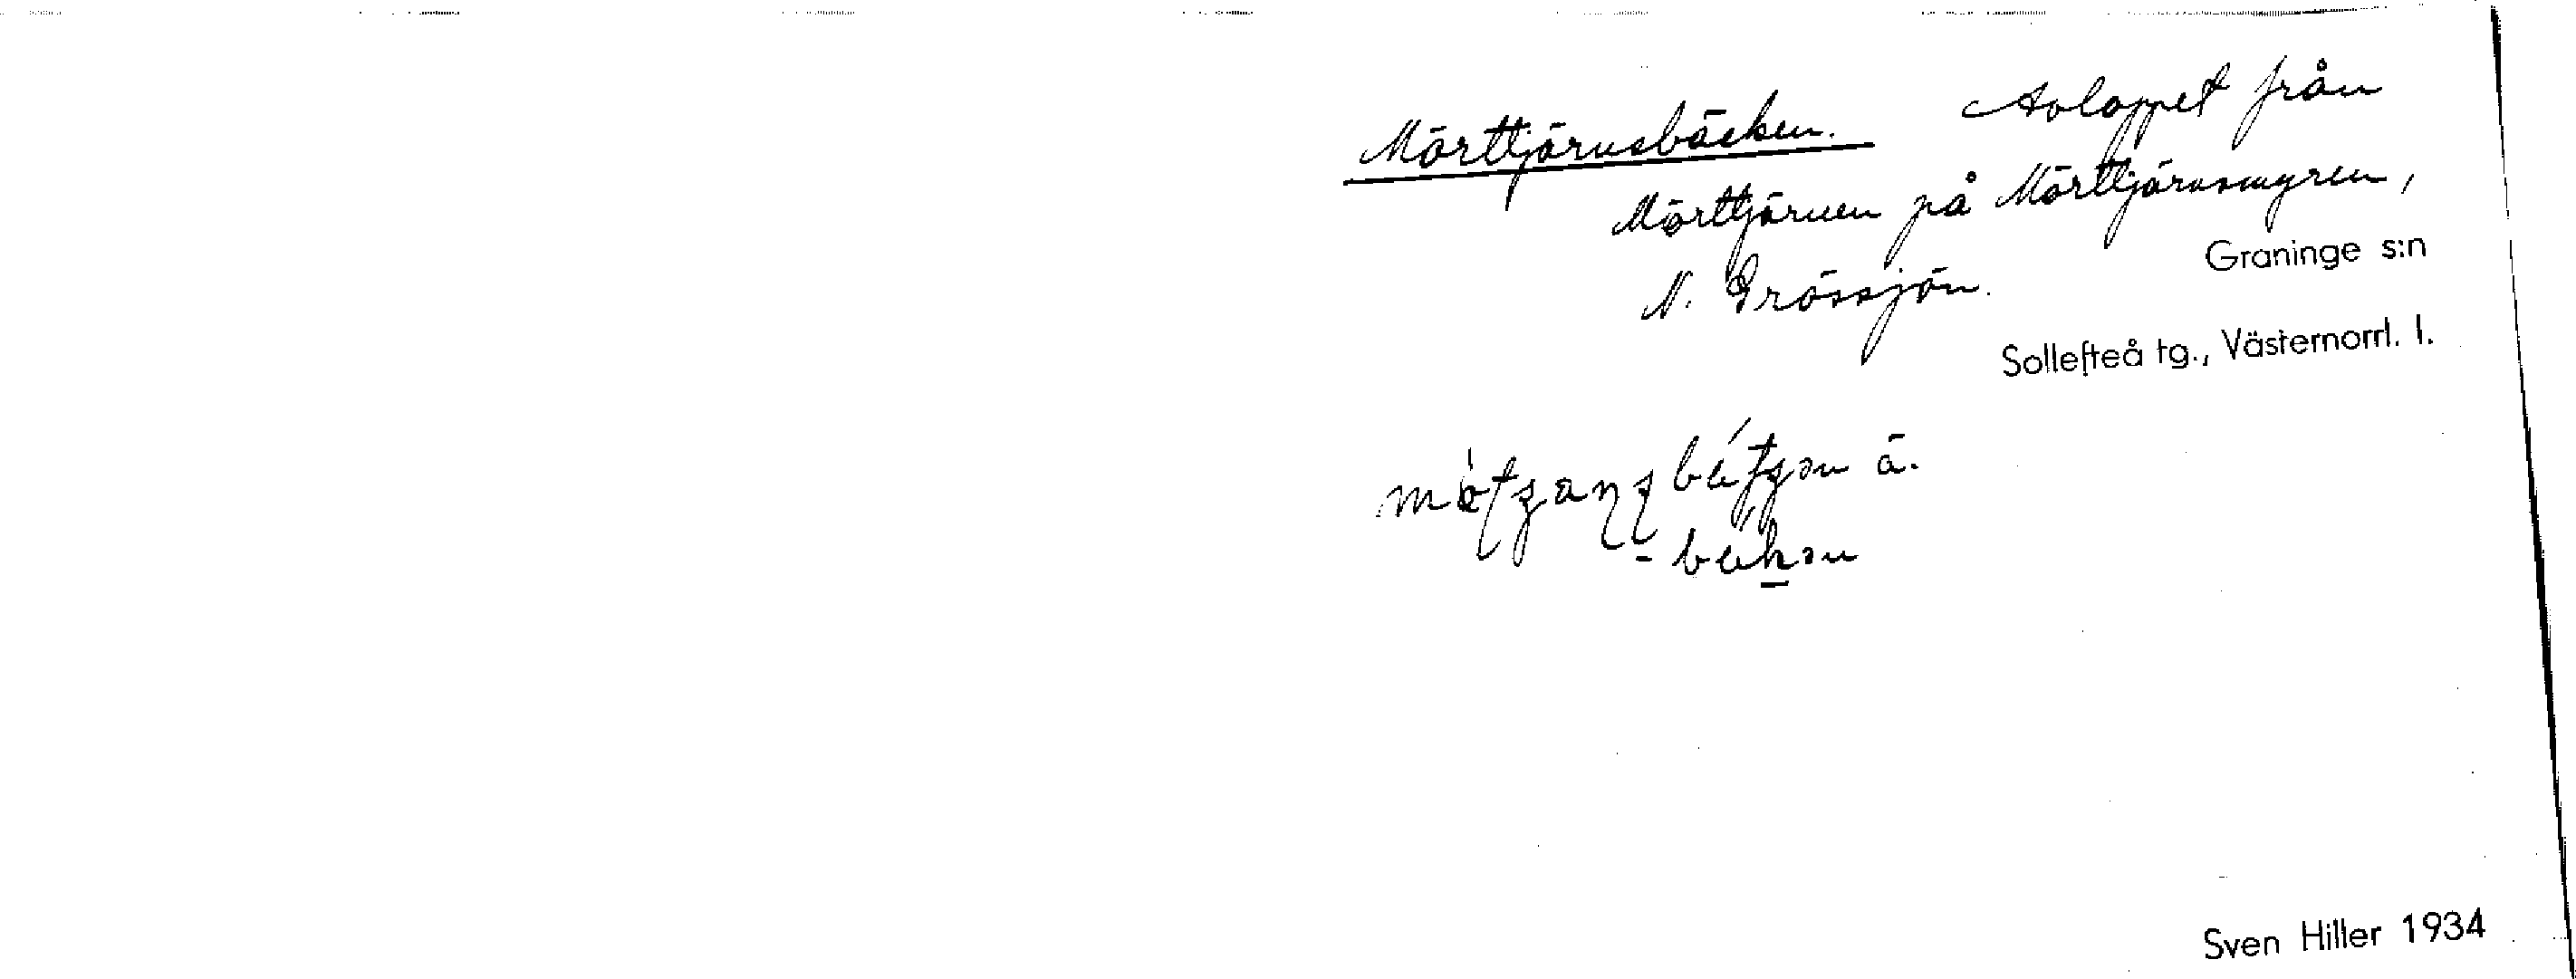 Mörttjärnsbäcken. Avloppet från
Mörttjärnen på Mörttjärnsmyren,
Graninge s:n
N. Grössjön.
Sollefteå tg., Västernorrl. l.
Sven Hiller 1934